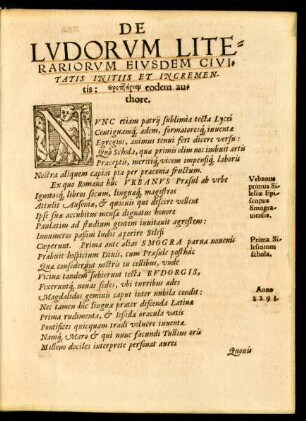 DE
LVDORVM LITE-
RARIORVM EIVSDEM CIVI-
TATIS INITIIS ET INCREMEN-
tis: eodem au-
thore.
NVNC etiam patrij sublimia tecta Lycei
Contiguamq́, adem, formatoresq́ inuentæ
Egregios, animus tenui fert dicere versu:
Quò Schola, qua primis olim nos imbuit artis
Præceptis, meritiq́ vicem impensiq́ laboris
Nostra aliquem capiat pia per præconia fructum.
Ex quo Romana huc VRBANVS Præsul ab vrbe
Ignotosq́ libros secum, linguæq́ magistros
Attulit Ausoniæ, & quouis qui discere vellent
Ipse sua accubitus mensæ dignatus honore
Paulatim ad studium gentem inuitauit agrestem:
Innumeras passim ludis assurere Slesi
Cœperunt. Prima ante alias SMOGRA parua iuuenis
Præbuit hospitium Titnis, cum Præsule posthàc
Quæ consederunt nostris in collibus, vnde
Vicina tandem subierunt tecta BVDORGIS,
Fixeruntq́, nouas sedes, vbi turribus ædes
Magdalidos geminis caput inter nubila condit:
Nec tamen hîc lingua præter discenda Latinæ
Prima rudimenta, & Iessidæ oracula vatis
Pontifices quicquam tradi voluere iuuentæ.
Namq́, Maro & qui nunc facundi Tullius oris
Millenos dociles interprete personat aures
Quouis
Vrbanus
primus Si-
lesiæ Epi-
scopus
Smogra-
uiensis.
Prima Si-
lesiorum
schola.
Anno